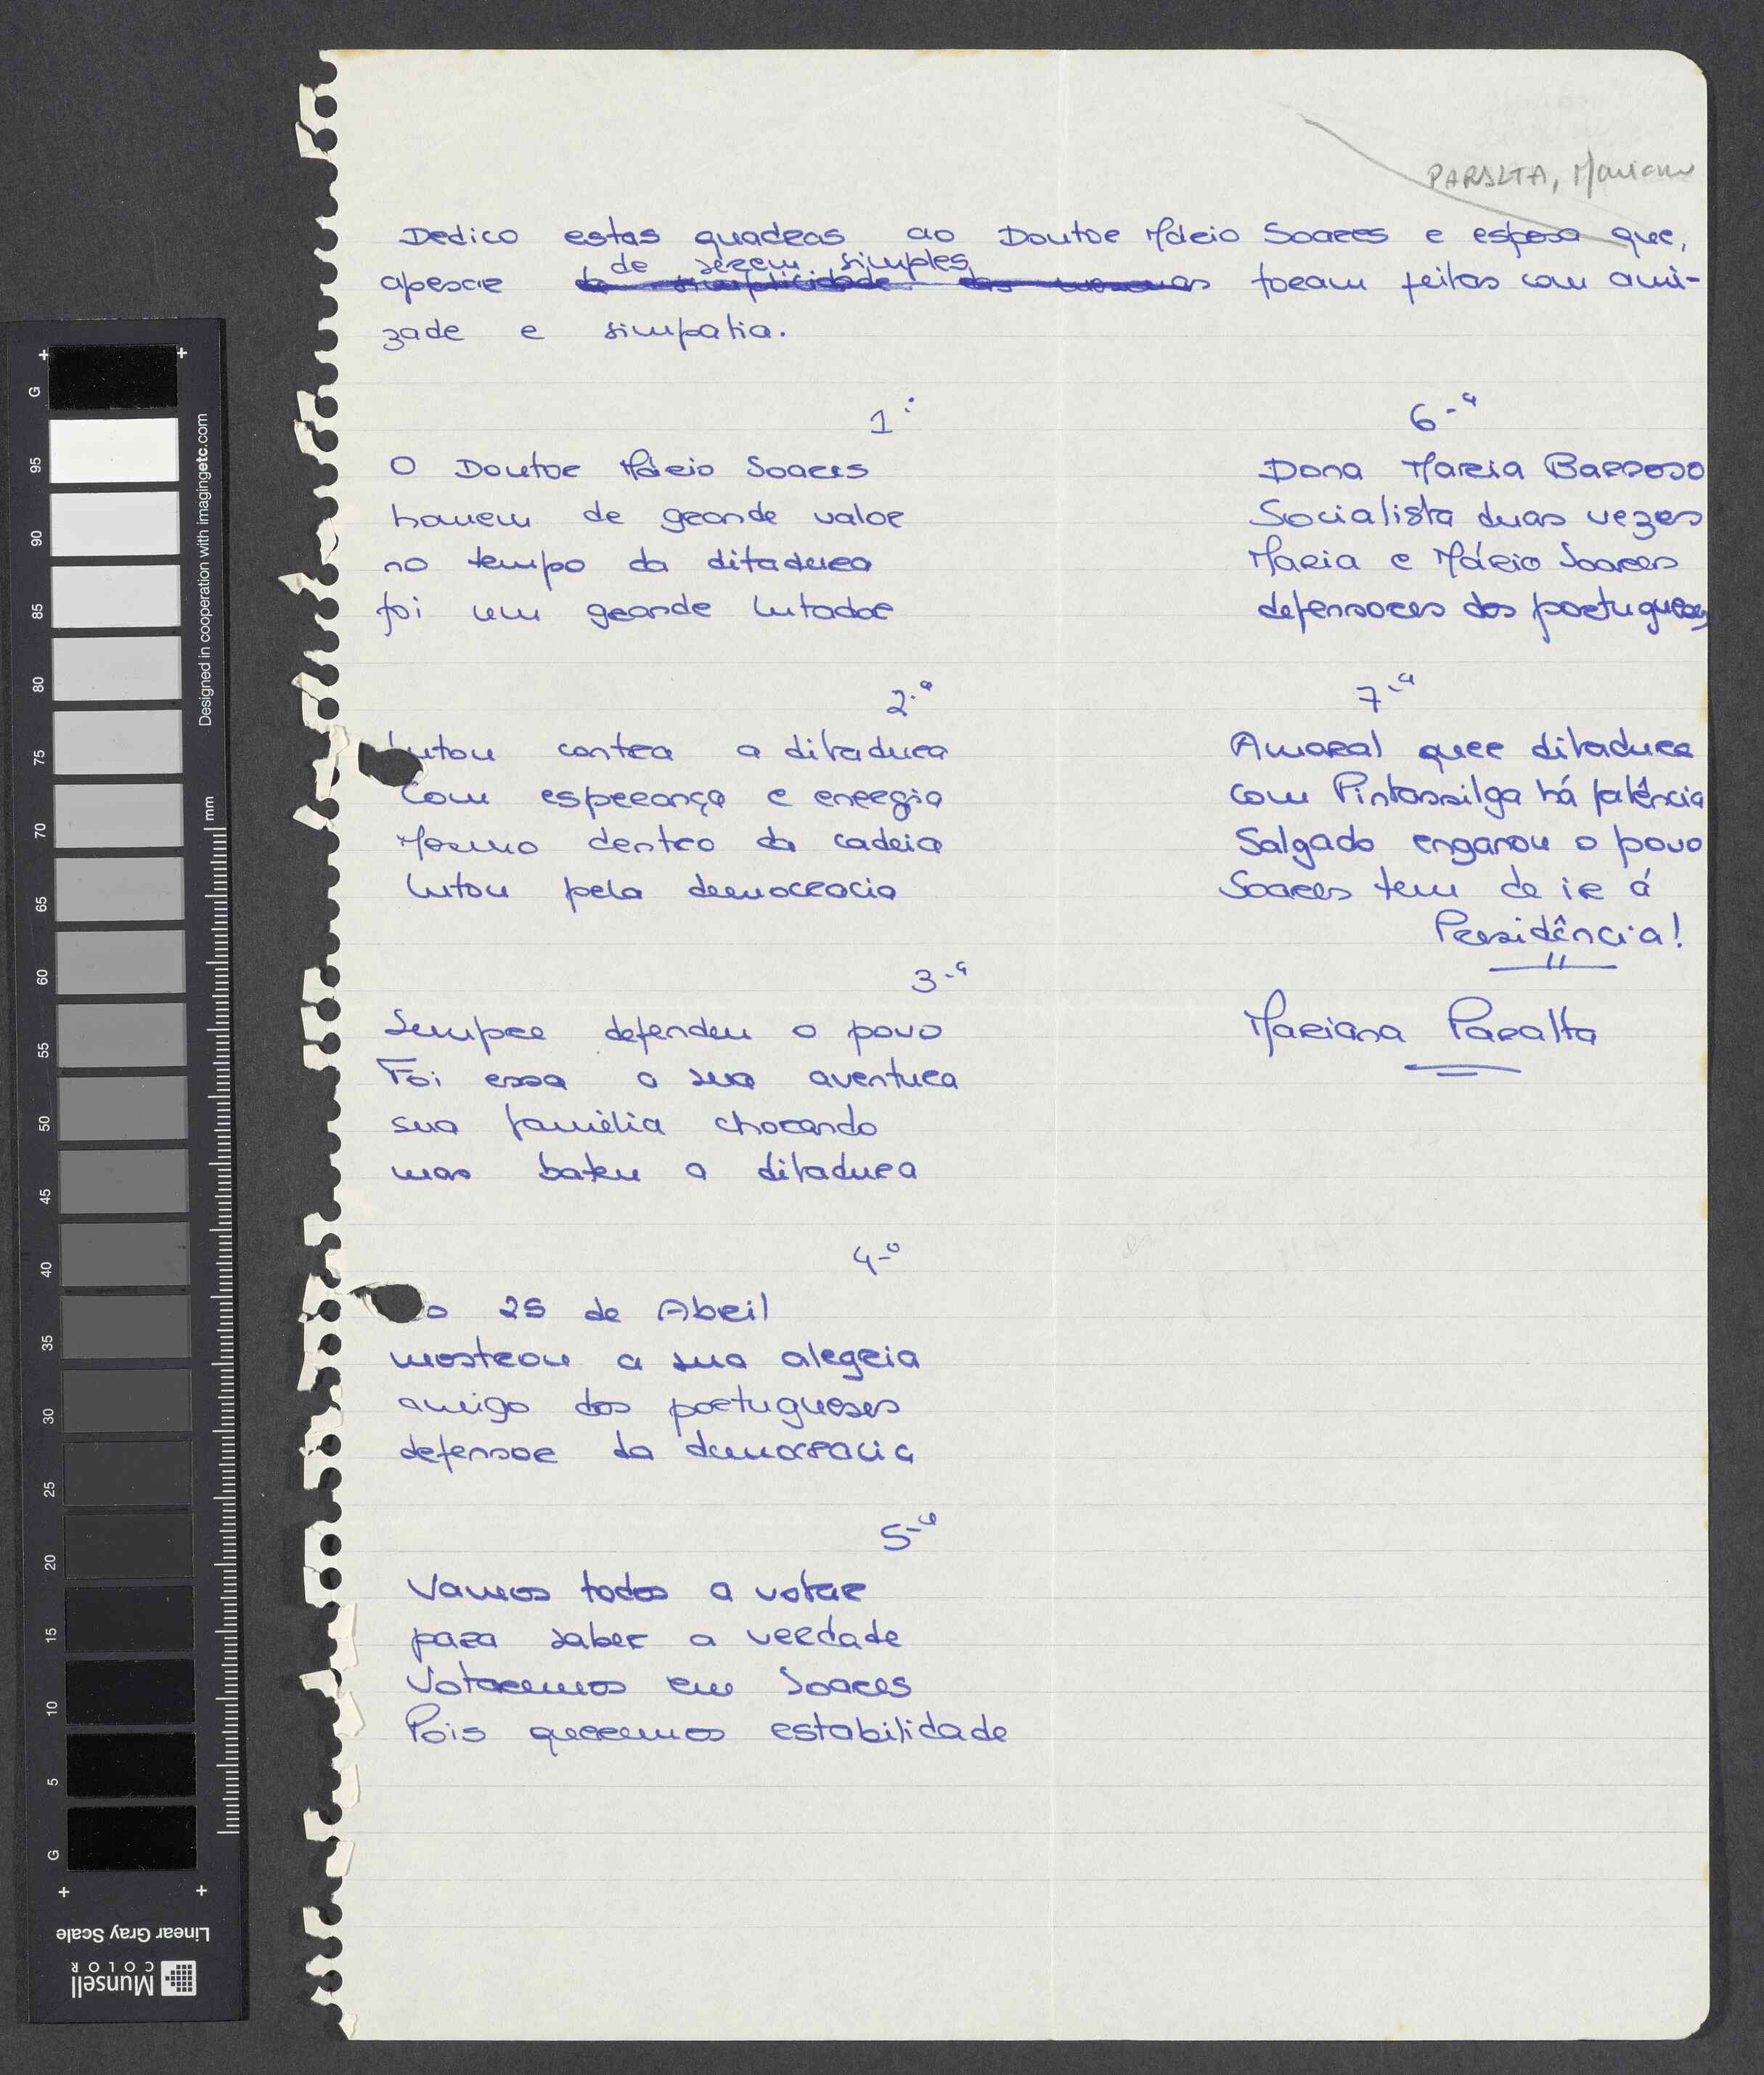 PARALTA, Mariana
Dedico estas quadras ao Doutor Mário Soares e esposa que,
de serem simples
apesar da simplicidade das mesmas foram feitas com ami-
zade e simpatia.
1.ª
O Doutor Mário Soares
homem de grande valor
no tempo da ditadura
foi um grande lutador
2.ª
Lutou contra a ditadura
Com esperança e energia
Mesmo dentro da cadeia
lutou pela democracia
3.ª
Sempre defendeu o povo
Foi essa a sua aventura
sua família chorando
mas bateu a ditadura
4.ª
o 25 de Abril
mostrou a sua alegria
amigo dos portugueses
defensor da democracia
5.ª
Vamos todos a votar
para saber a verdade
Votaremos em Soares
Pois queremos estabilidade
6.ª
Dona Maria Barroso
Socialista duas vezes
Maria e Mário Soares
defensores dos portugueses
7.ª
Amaral quer ditadura
com Pintassilga há falência
Salgado enganou o povo
Soares tem de ir á
Presidência!
Mariana Paralta
G
95
90
85
80
75
70
65
60
55
50
45
40
35
30
25
20
15
10
5
G
Designed in cooperation with imagingetc.com
mm
Linear Gray Scale
Munsell
COLOR